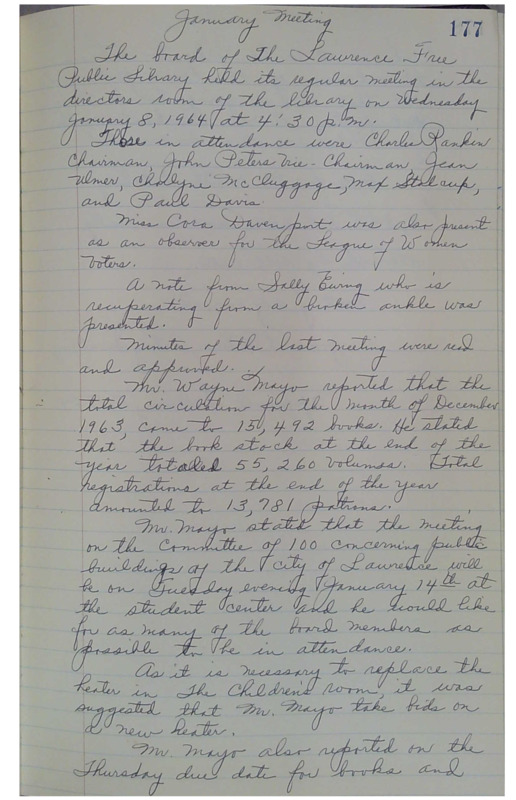 January Meeting
177
The board of The Lawrence Free
Public Library held its regular meeting in the
directors room of the library on Wednesday
January 8, 1964 at 4:30 p.m.
Those in attendance were Charles Rankin
Chairman, John Peters Vice-Chairman, Jean
Ulmer, Chollyne McCluggage, Max Stalcup,
and Paul Davis.
Miss Cora Davenport was also present
as an observer for the League of Women
Voters.
A note from Sally Ewing who is
recuperating from a broken ankle was
presented.
Minutes of the last meeting were read
and approved.
Mr. Wayne Mayo reported that the
total circulation for the month of December
1963, came to 15,492 books. He stated
that the book stock at the end of the
year totaled 55,260 volumes. Total
registrations at the end of the year
amounted to 13,781 patrons.
Mr. Mayo stated that the meeting
on the Committee of 100 concerning public
buildings of the city of Lawrence will
be on Tuesday evening January 14th at
the student center and he would like
for as many of the board members as
possible to be in attendance.
As it is necessary to replace the
heater in The Children's room, it was
suggested that Mr. Mayo take bids on
a new heater.
Mr. Mayo also reported on the
Thursday due date for books and